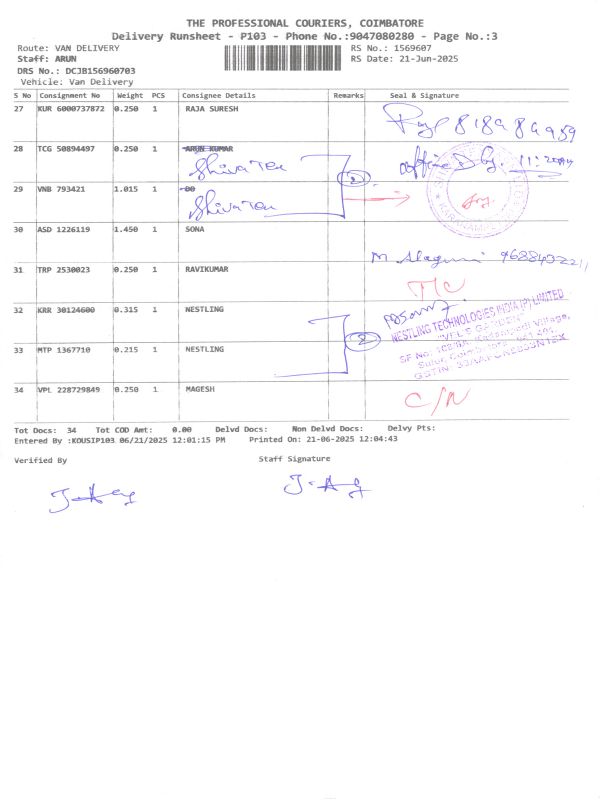 THE PROFESSIONAL COURIERS, COIMBATORE
Delivery Runsheet - P103 - Phone No.:9047080280 - Page No.:3
Route: VAN DELIVERY RS No.: 1569607
Staff: ARUN RS Date: 21-Jun-2025
DRS No.: DCJB156960703
Vehicle: Van Delivery
S No Consignment No Weight PCS Consignee Details Remarks Seal & Signature
27 KUR 6000737872 0.250 1 RAJA SURESH
28 TCG 50894497 0.250 1 ARUN KUMAR
29 VNB 793421 1.015 1 DO
30 ASD 1226119 1.450 1 SONA
31 TRP 2530023 0.250 1 RAVIKUMAR
32 KRR 30124600 0.315 1 NESTLING
2
NESTLING TECHNOLOGIES INDIA (P) LIMITED
33 MTP 1367710 0.215 1 NESTLING
34 VPL 228729849 0.250 1 MAGESH
C/N
Tot Docs: 34 Tot COD Amt: 0.00 Delvd Docs: Non Delvd Docs: Delvy Pts:
Entered By :KOUSIP103 06/21/2025 12:01:15 PM Printed On: 21-06-2025 12:04:43
Verified By Staff Signature